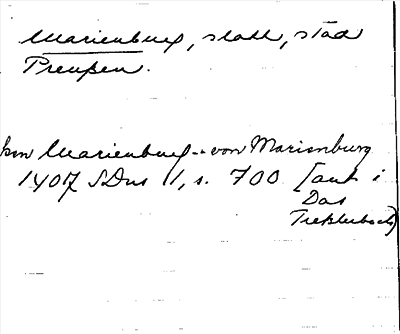 Marienburg, slott, stad
Preußen.
km Marienburg - von Marienburg
1407 SDns 1, s. 700. [ant i
Das
Treßlerbuch)